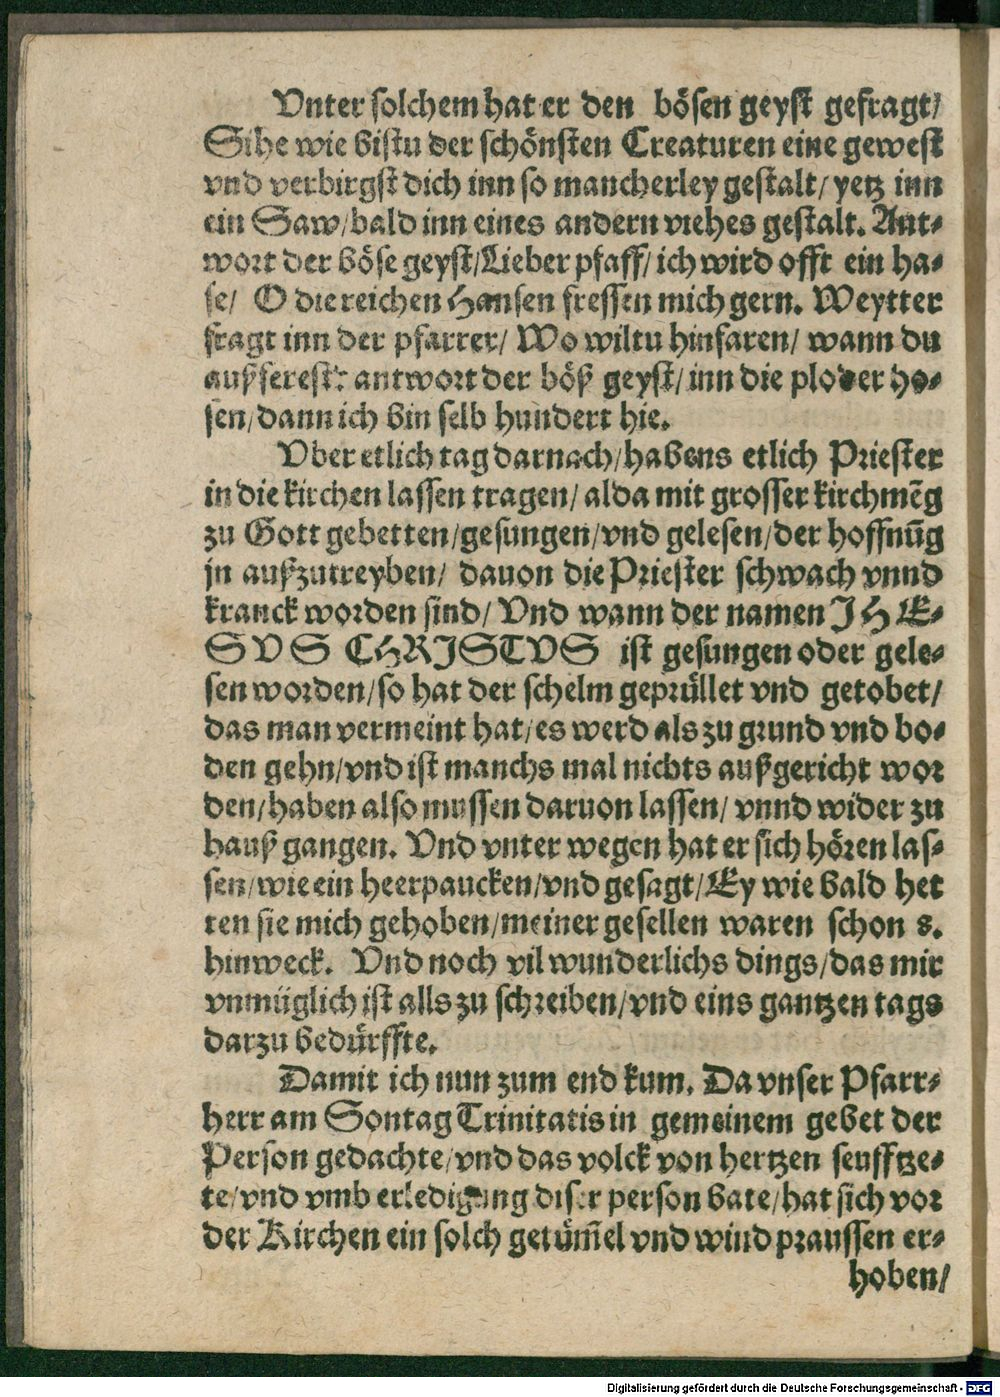 Vnter solchem hat er den bösen geyst gefragt/
Sihe wie bistu der schönsten Creaturen eine gewest
vnd verbirgst dich inn so mancherley gestalt/ yetz inn
ein Saw/ bald inn eines andern viehes gestalt. Ant-
wort der böse geyst/ Lieber pfaff/ ich wird offt ein ha-
se/ O die reichen Hansen fressen mich gern. Weytter
fragt inn der pfarrer/ Wo wiltu hinfaren/ wann du
außferest? antwort der böß geyst/ inn die ploder ho-
sen/ dann ich bin selb hundert hie.
Vber etlich tag darnach/ habens etlich Priester
in die kirchen lassen tragen/ alda mit grosser kirchmēg
zu Gott gebetten/ gesungen/ vnd gelesen/ der hoffnūg
jn außzutreyben/ dauon die Priester schwach vnnd
kranck worden sind/ Vnd wann der namen JHE-
SVS CHRISTVS ist gesungen oder gele-
sen worden/ so hat der schelm geprüllet vnd getobet/
das man vermeint hat/ es werd als zu grund vnd bo-
den gehn/ vnd ist manchs mal nichts außgericht wor
den/ haben also mussen daruon lassen/ vnnd wider zu
hauß gangen. Vnd vnter wegen hat er sich hören las-
sen/ wie ein heerpaucken/ vnd gesagt/ Ey wie bald het
ten sie mich gehoben/ meiner gesellen waren schon 8.
hinweck. Vnd noch vil wunderlichs dings/ das mir
vnmüglich ist alls zu schreiben/ vnd eins gantzen tags
darzu bedürffte.
Damit ich nun zum end kum. Da vnser Pfarr-
herr am Sontag Trinitatis in gemeinem gebet der
Person gedachte/ vnd das volck von hertzen seufftze-
te/ vnd vmb erledigung diser person bate/ hat sich vor
der Kirchen ein solch getüm̄el vnd wind praussen er-
hoben/
Digitalisierung gefördert durch die Deutsche Forschungsgemeinschaft - DFG